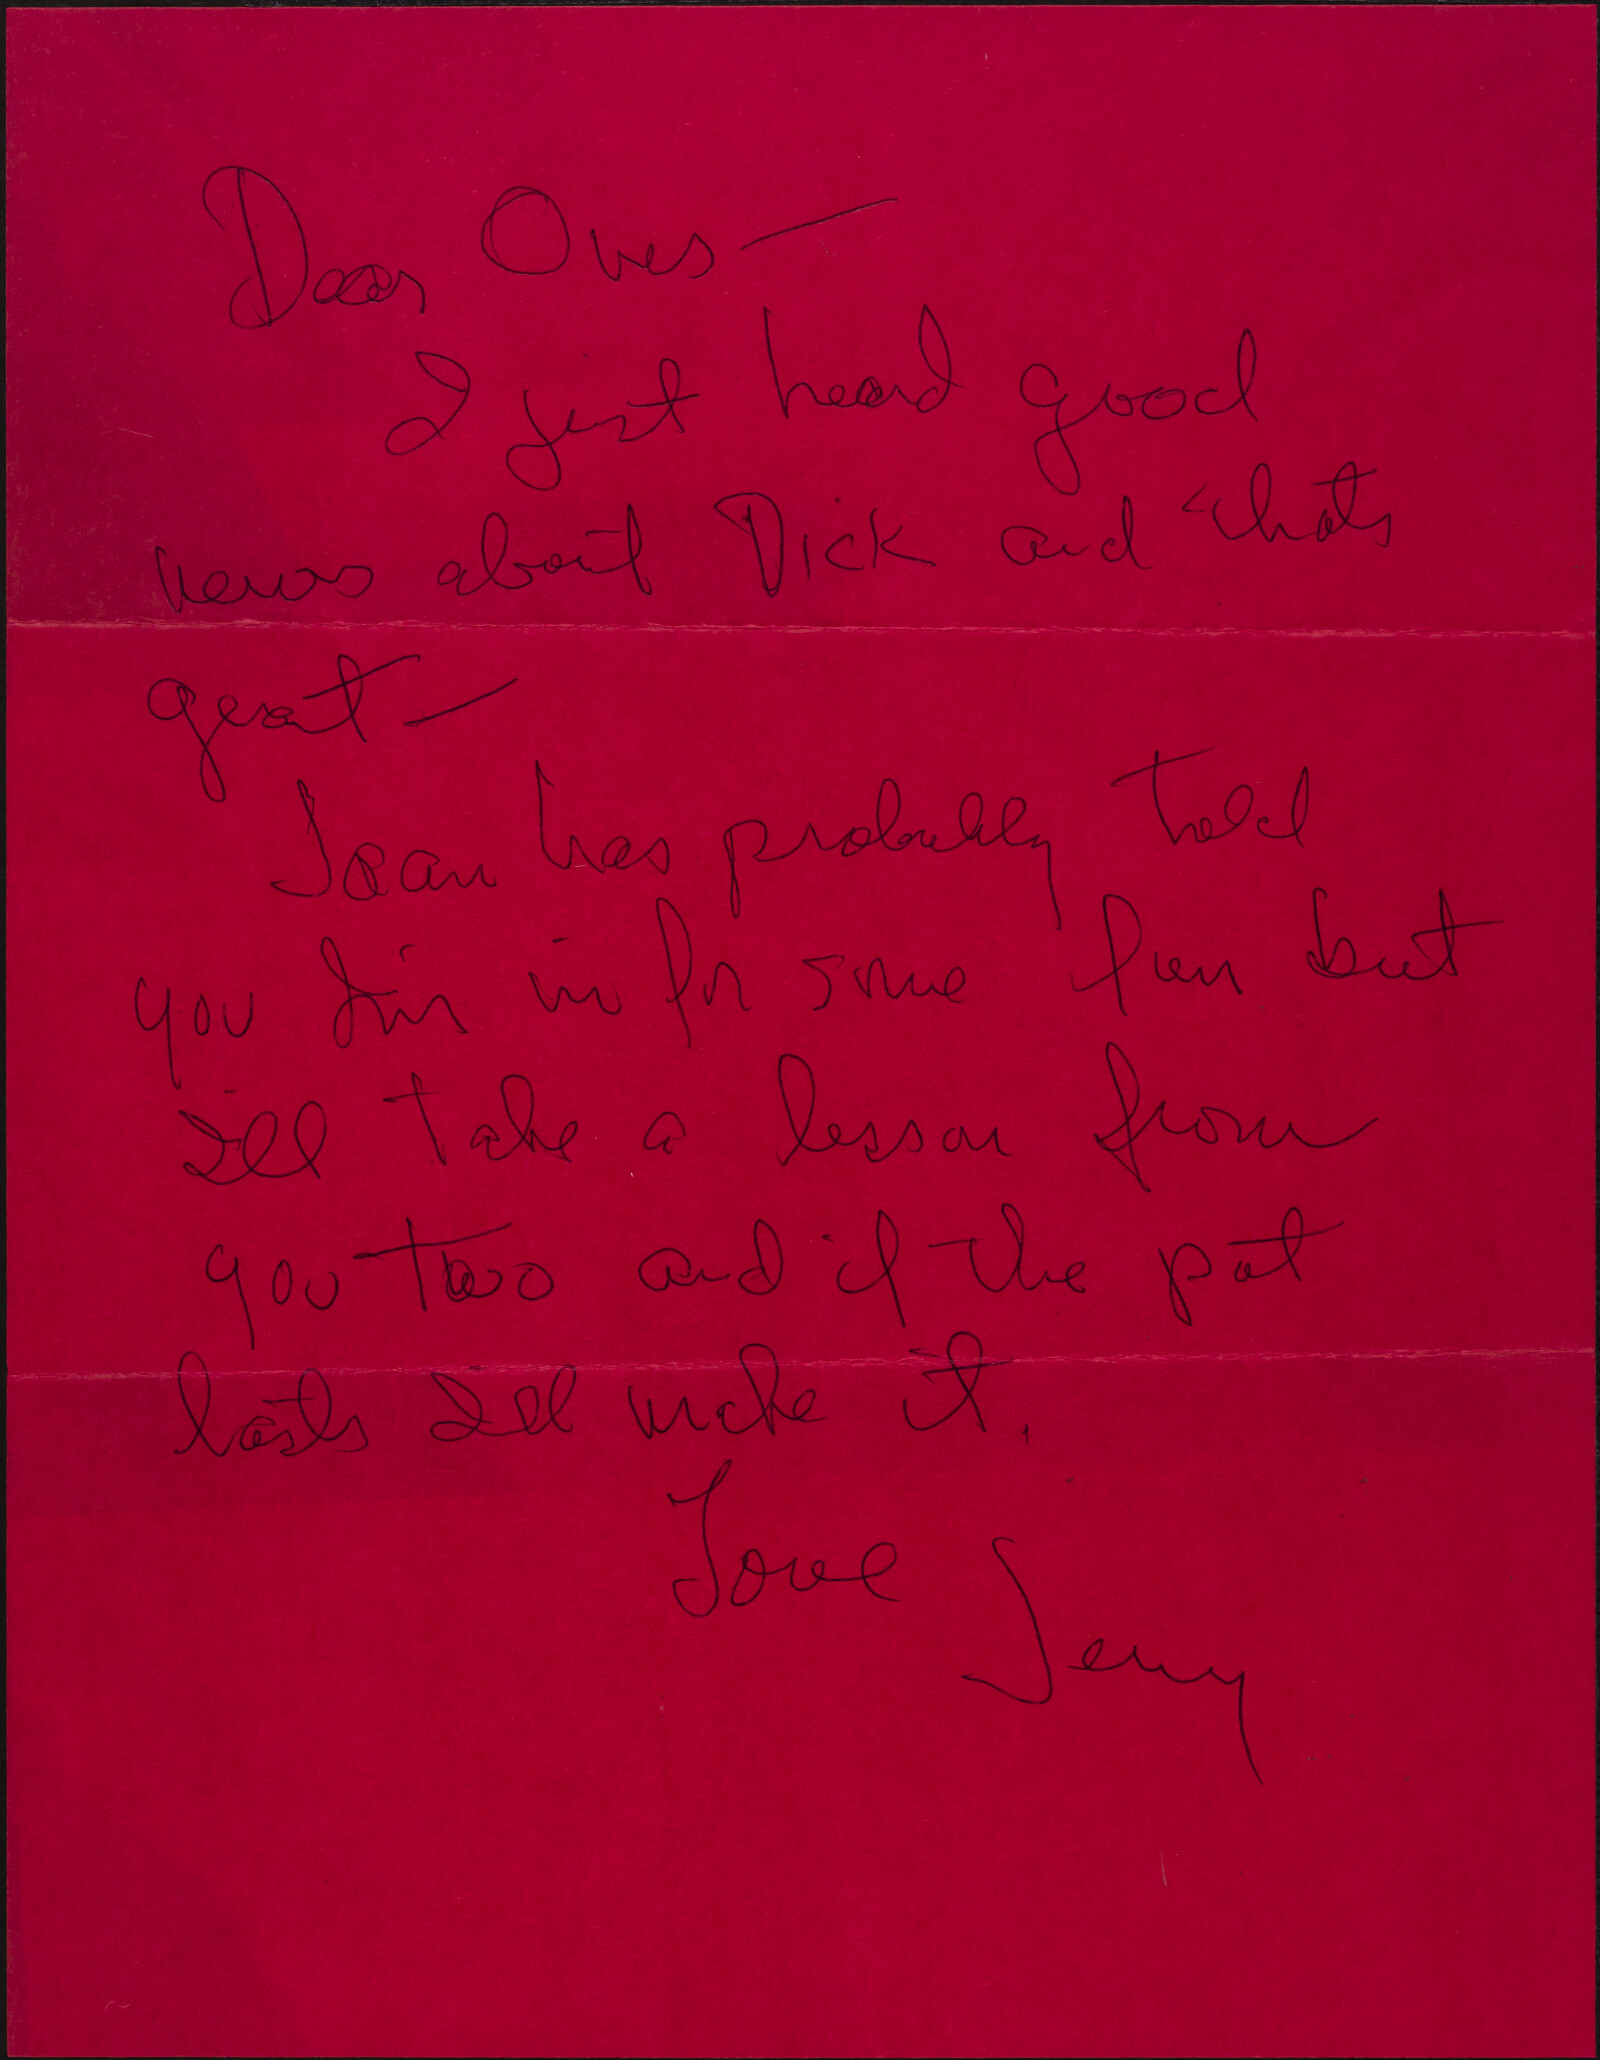 Dear Ones —
I just heard good
news about Dick and thats
great —
Joan has probably told
you I'm in for some fun but
I'll take a lesson from
you two and if the pot
lasts I'll make it.
Love Jerry